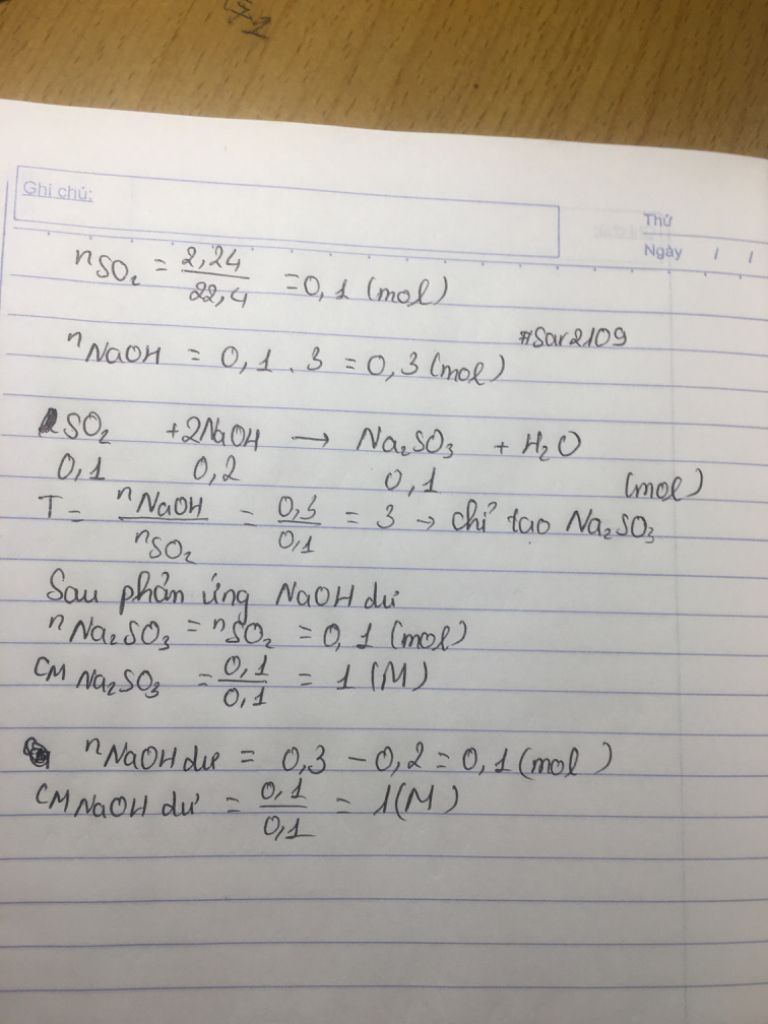 Ghi chú:
Thứ
Ngày / /
nSO₂ = 2,24/22,4 = 0,1 (mol)
#Sar2109
nNaOH = 0,1 . 3 = 0,3 (mol)
SO₂ + 2NaOH → Na₂SO₃ + H₂O
0,1 0,2 0,1 (mol)
T = nNaOH/nSO₂ = 0,3/0,1 = 3 → chỉ tạo Na₂SO₃
Sau phản ứng NaOH dư
nNa₂SO₃ = nSO₂ = 0,1 (mol)
CM Na₂SO₃ = 0,1/0,1 = 1 (M)
nNaOH dư = 0,3 - 0,2 = 0,1 (mol)
CM NaOH dư = 0,1/0,1 = 1 (M)